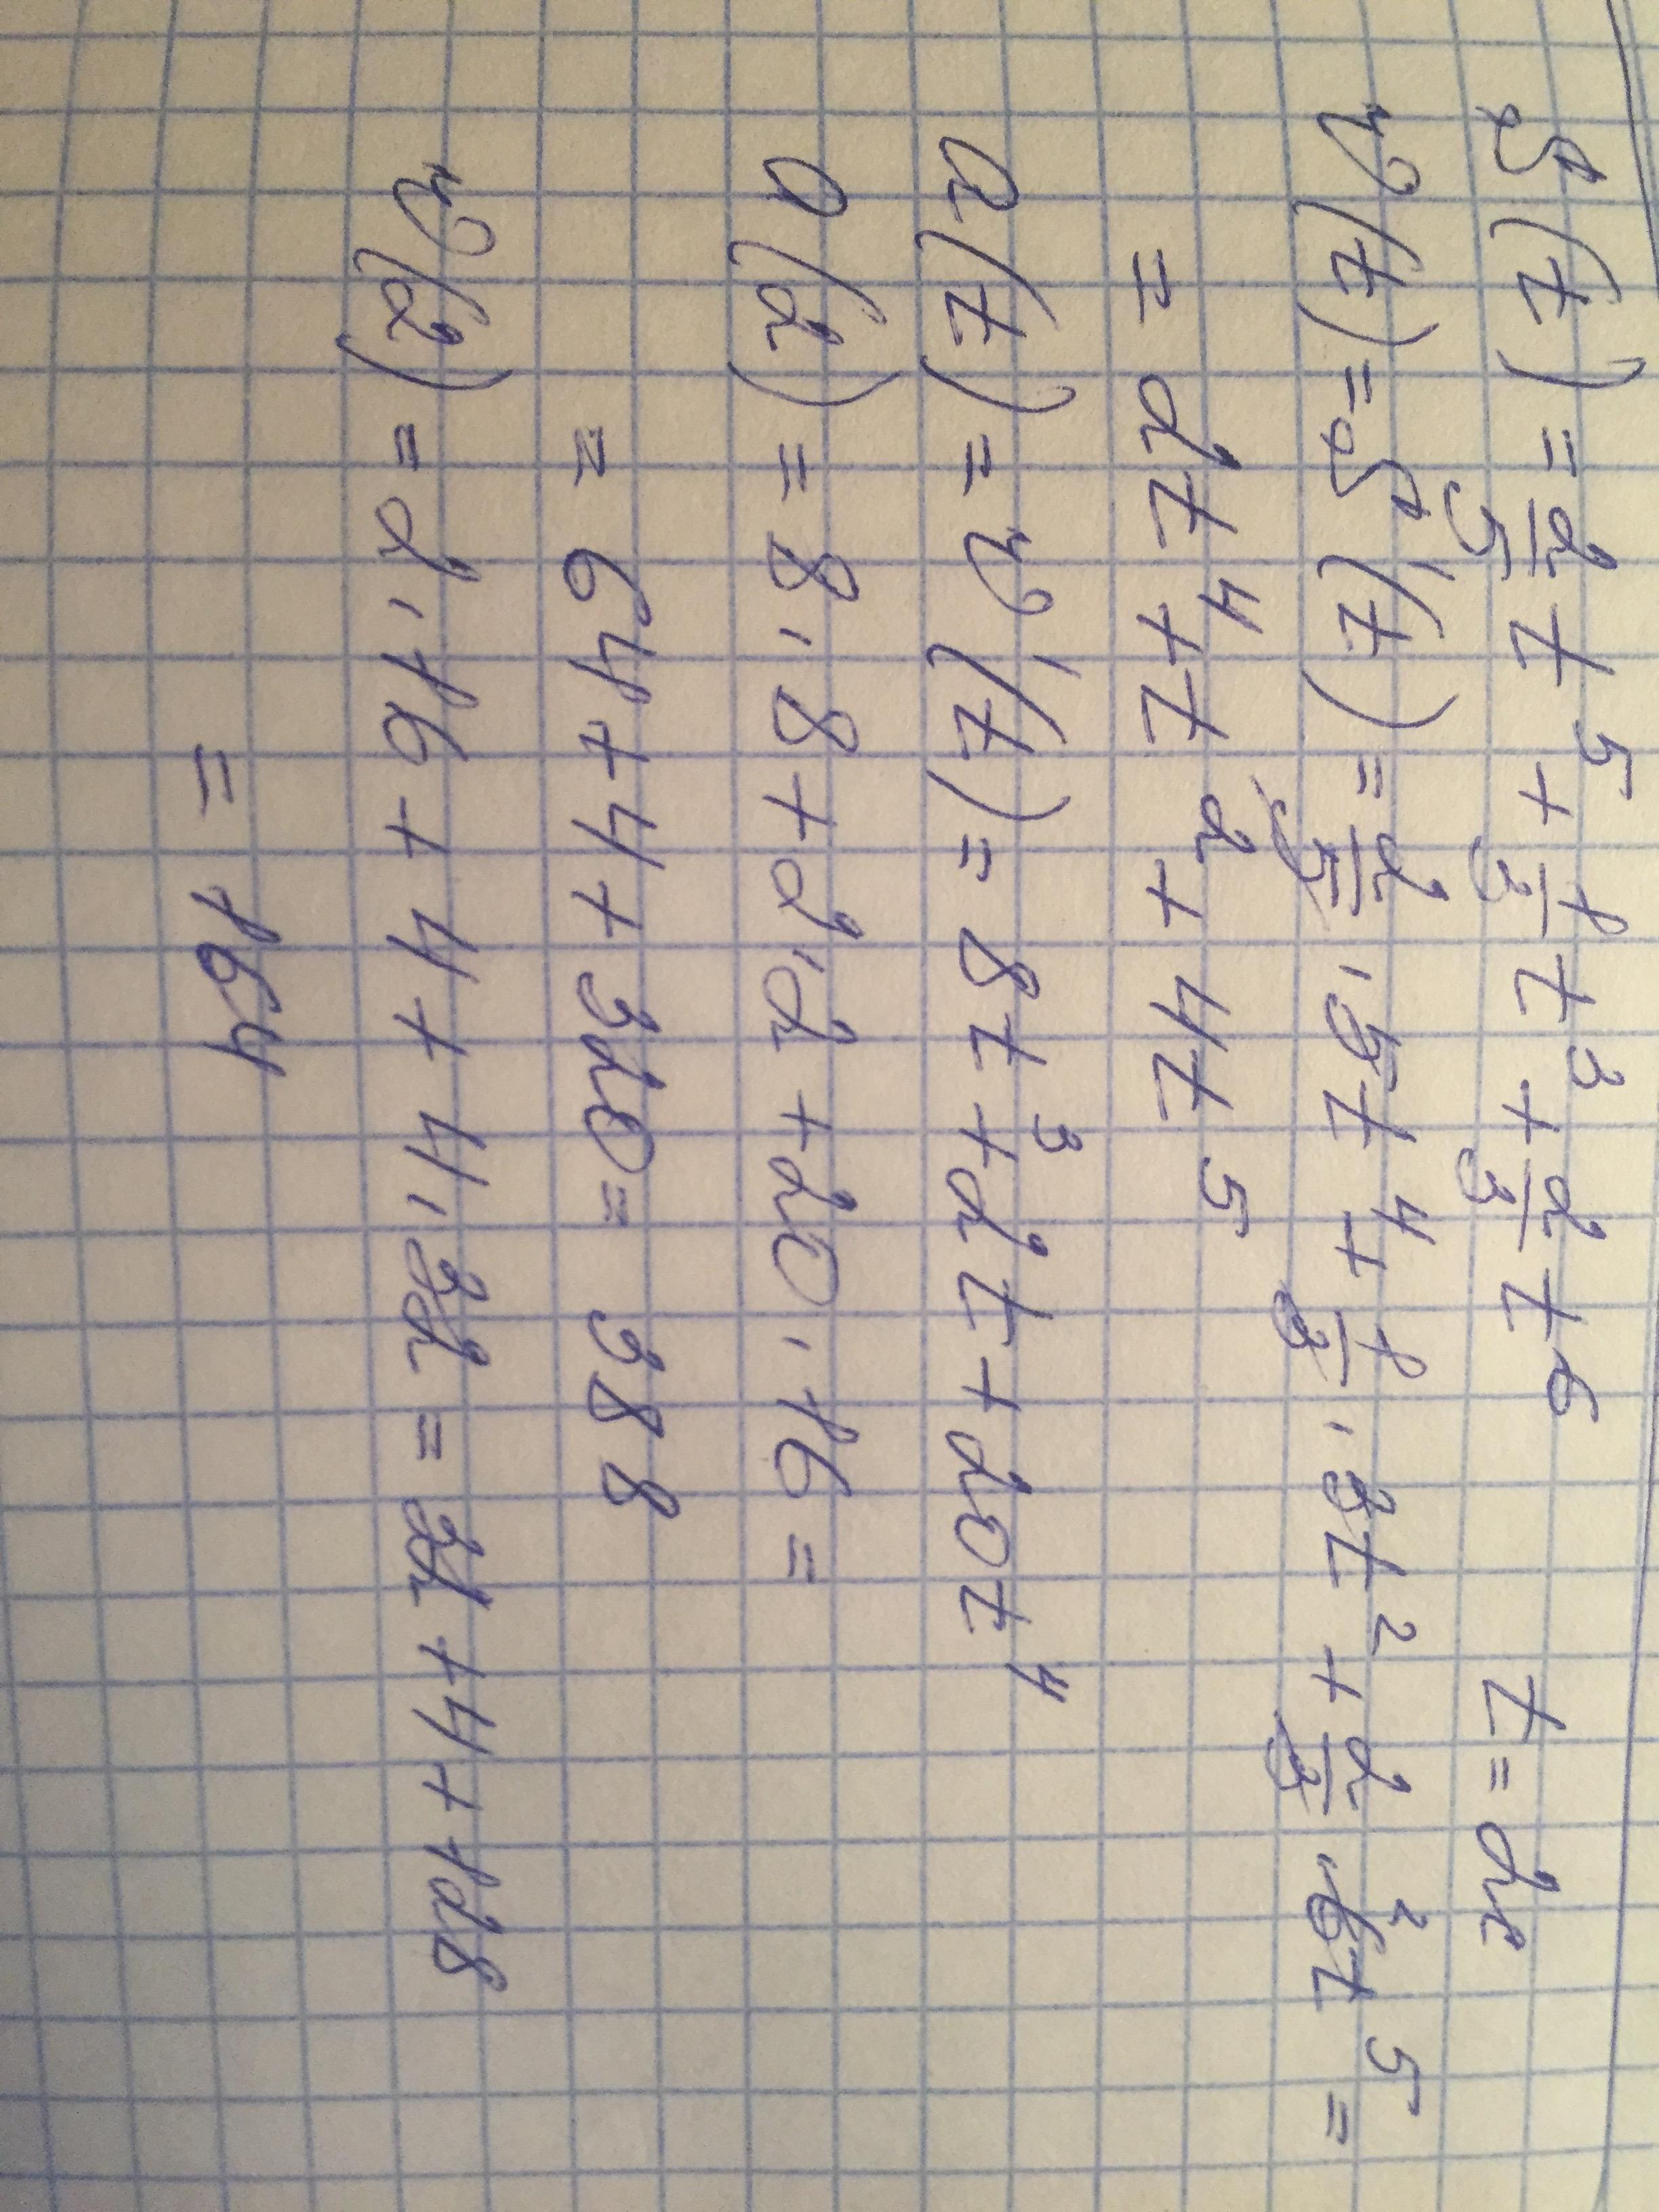 S(t) = 2/5 t⁵ + 1/3 t³ + 2/3 t⁶ t = 2c
v(t) = S'(t) = 2/5 · 5t⁴ + 1/3 · 3t² + 2/3 · 6² t⁵ =
= 2t⁴ + t² + 4t⁵
a(t) = v'(t) = 8t³ + 2t + 20t⁴
a(2) = 8 · 8 + 2 · 2 + 20 · 16 =
= 64 + 4 + 320 = 388
v(2) = 2 · 16 + 4 + 4 · 32 = 32 + 4 + 128
= 164